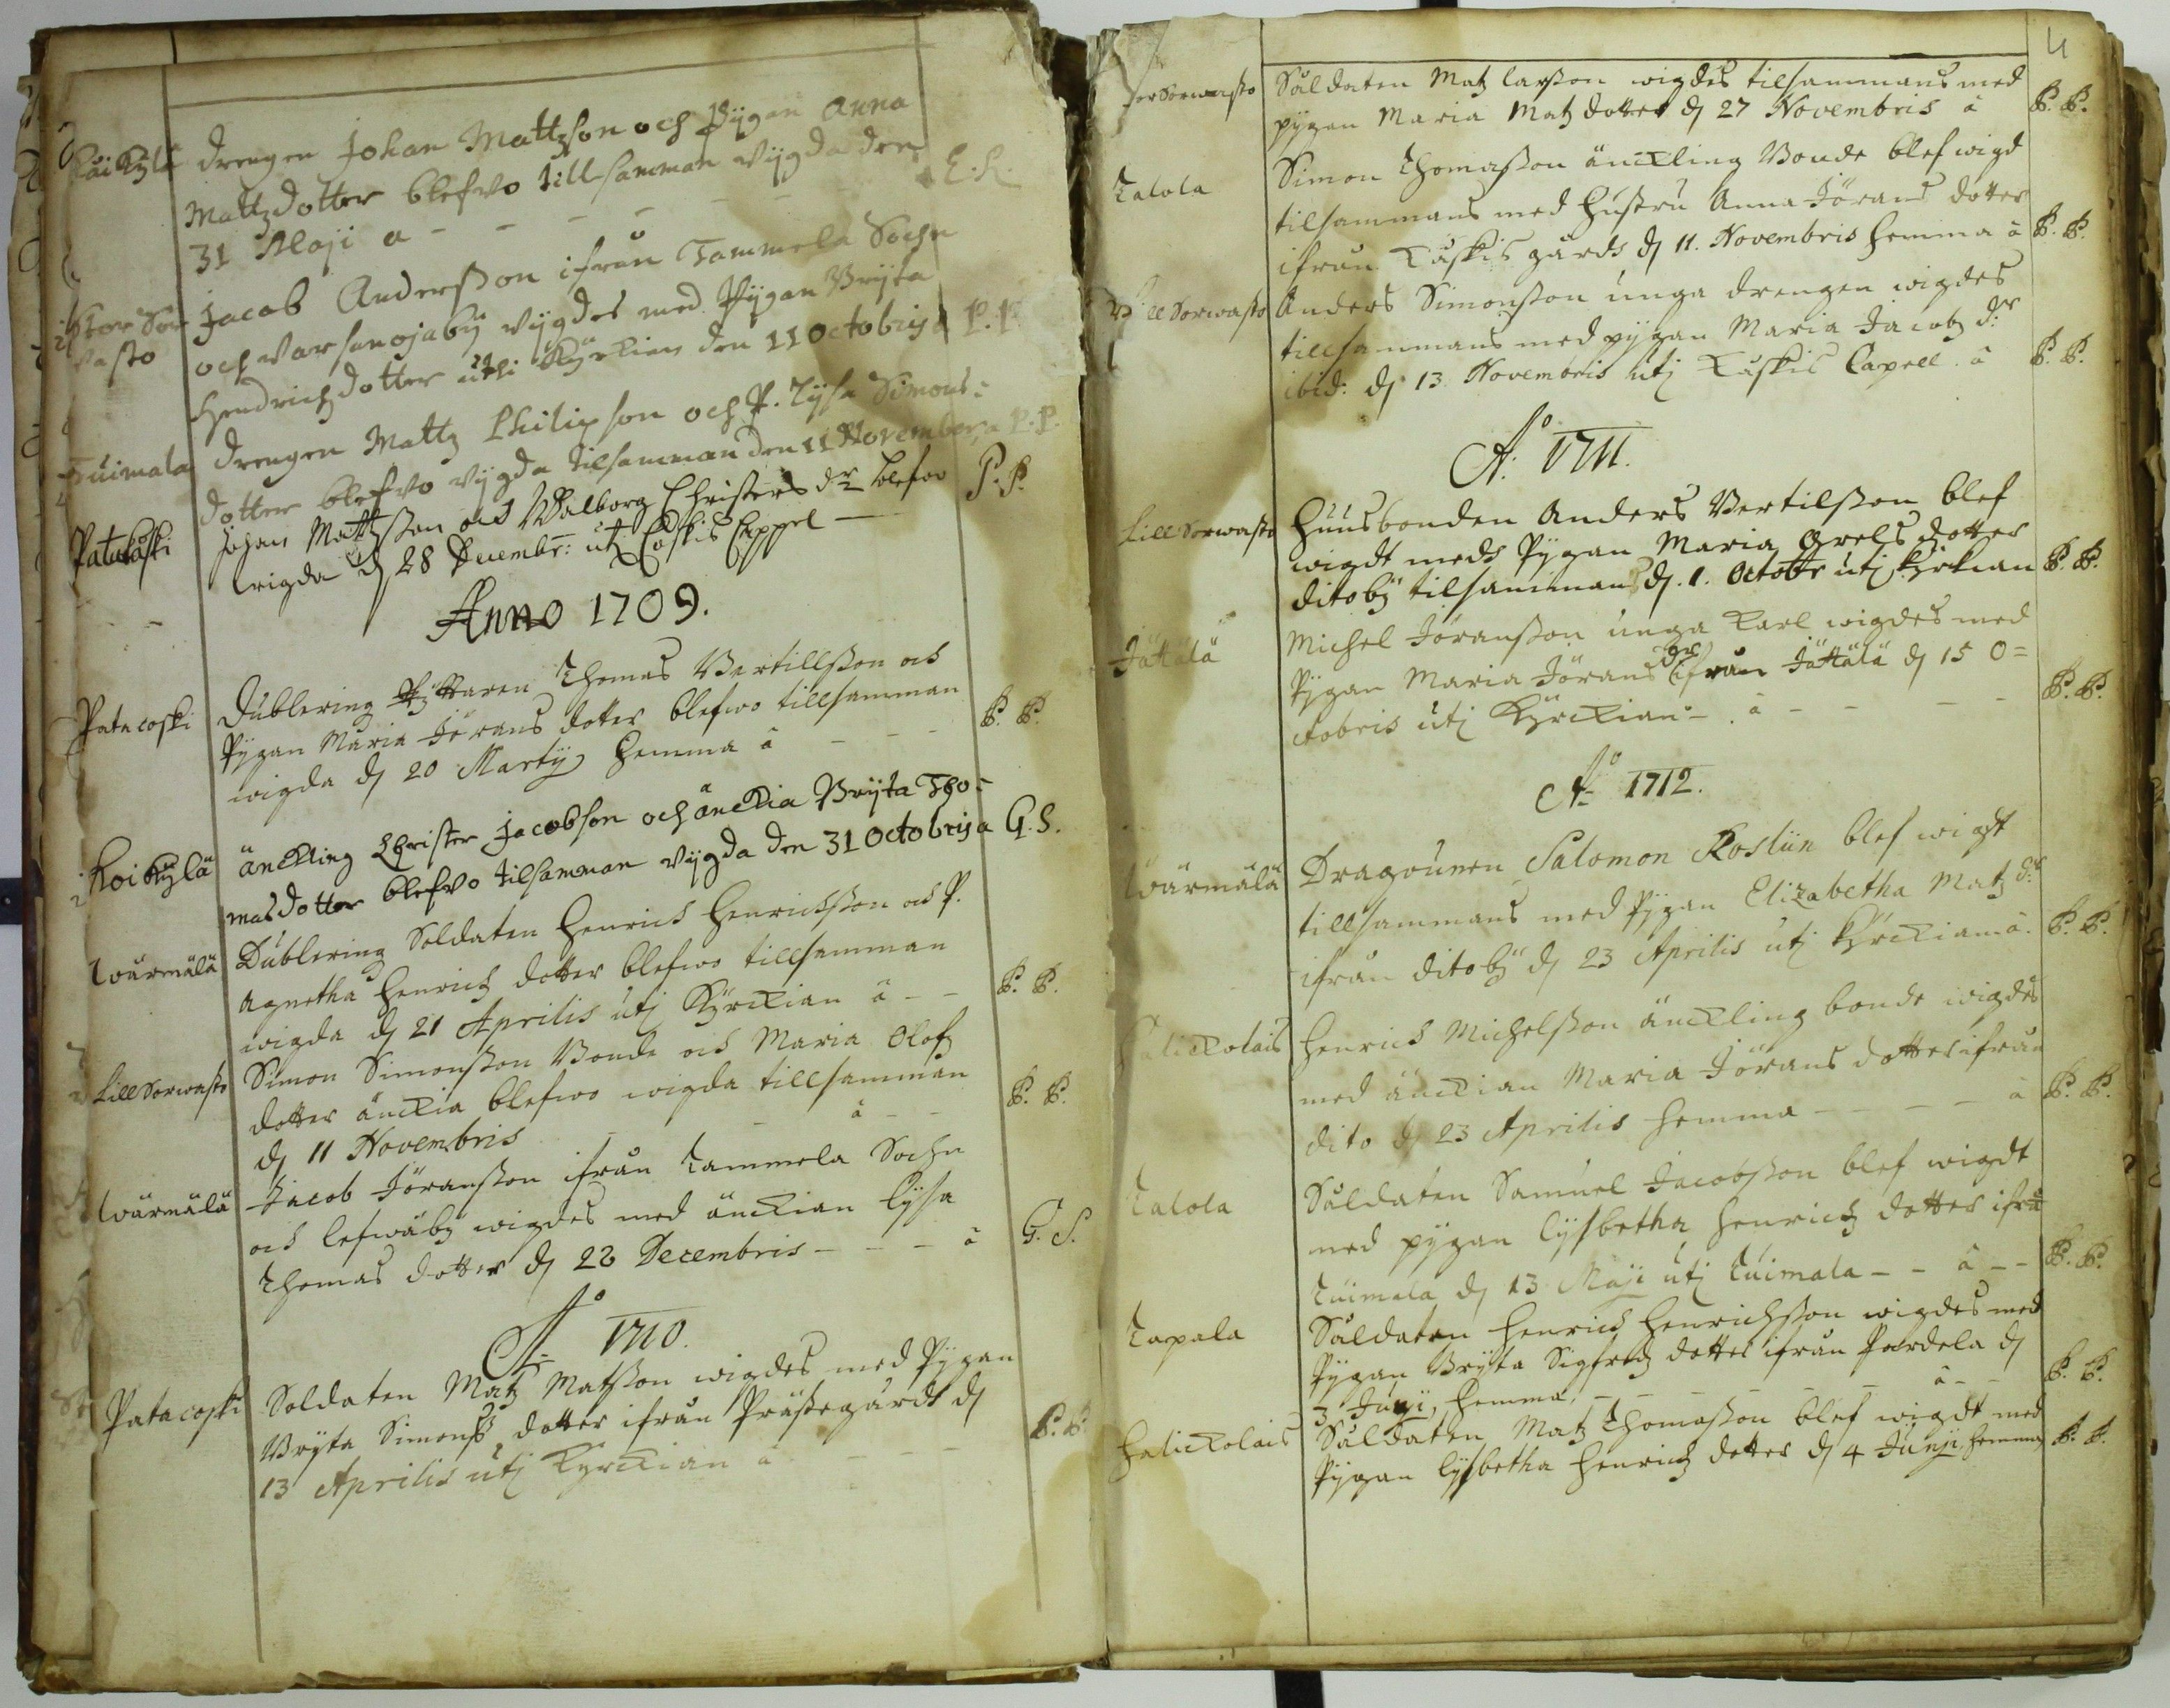 Koikylä drengen Johan Mattzson och Pygan Anna
Mattzdotter blefvo till samman Vygda den
31 Maji a - - - - - E.L.
Stor Sor Jacob Andersson ifrån Tammela Sochn
vasto och Varsanojaby Vygdes med Pygan Bryta
Hendrichdotter uthi Kyrkian den 11 Octobris a P.P.
Tuimala drengen Mattz Philipson och P. Lysa Simons-
dotter blefvo Vygda tilsamman den 11 November a P.P.
Patakoski Johan Mattzsson och Walborg Christers dr blefvo P.P.
wigda d 28 Decembr: utj Coskis Cappel
Anno 1709.
Patacoski Dublering Ryttaren Thomas Bertillsson och
Pygan Maria Jörans dotter blefwo tillsamman
wigda d 20 Martij hemma å - - - P. P.
Koikylä änckling Christer Jacobson och änckia Bryta Tho-
masdotter blefvo tilsamman Vygda den 31 Octobris a G.S.
Wärmälä Dublering Soldaten Henrich Henrichsson och P.
Agnetha Henrichz dotter blefwo tillsamman
wigda d 21 Aprilis utj Kyrckian å - - P. P.
Lill Sorwasto Simon Simonsson Bonde och Maria Olofz
dotter änckia blefwo wigda tillsamman
d 11 Novembris - - å - - P. P.
Wärmälä Jacob Jöransson ifrån Tammela Sochn
och Lefwäby wigdes med änckian Lysa
Thomas dotter d 28 Decembris - - - å G. S.
Ao 1710.
Patacoski Soldaten Matz Matsson wigdes med Pygan
Bryta Simons dotter ifrån Prästegårdt d
13 Aprilis utj Kyrckian å - - - P. P.
4
Stor Sorwasto Såldaten Matz Larsson wigdes tilsammans med
pygan Maria Matzdotter d 27 Novembris å P. P.
Talola Simon Thomasson änckling Bonde blef wigd
tilsammans med hustru Anna Jörans dotter
ifrån Kaskis gårdh d 11. Novembris hemma å P. P.
Lill Sorwasto Anders Simonsson unga drengen wigdes
tillsammans med pygan Maria Jacobz dr
ibid: d 13. Novembris utj Kaskis Capell. å P. P.
Ao 1711.
Lill Sorwasto Huusbonden Anders Bertilsson blef
wigdt medh Pygan Maria Grels dotter
ditoby tilsammans d. 1. Octobr utj Kyrkian P. P.
Jättälä Michel Jöransson unga Karl wigdes med
Pygan Maria Jörans dr ifrån Jättälä d 15 O=
ctobris utj Kyrckian - å - - - P. P.
Ao 1712.
Wärmälä Dragounen Salomon Roslin blef wigdt
tillsammans med Pygan Elizabetha Matz dr
ifrån ditoby d 23 Aprilis utj Kyrckian å. P. P.
Halickolais Henrich Michelsson änckling bonde wigdes
med änckian Maria Jörans dotter ifrån
dito d 23 Aprilis hemma - - - - å P. P.
Talola Såldaten Samuel Jacobsson blef wigdt
med pygan Lysbetha Henrichz dotter ifrå
Tuimala d 13 Maji utj Tuimala - - å - - P. P.
Tapala Såldaten Henrich Henrichsson wigdes med
Pygan Bryta Sigfredz dotter ifrån Pardela d
3 Junij, hemma, - - - - - å - P. P.
Halickolais Såldaten Matz Thomasson blef wigdt med
Pygan Lysbetha Henrichz dotter d 4 Junij hemma P. P.